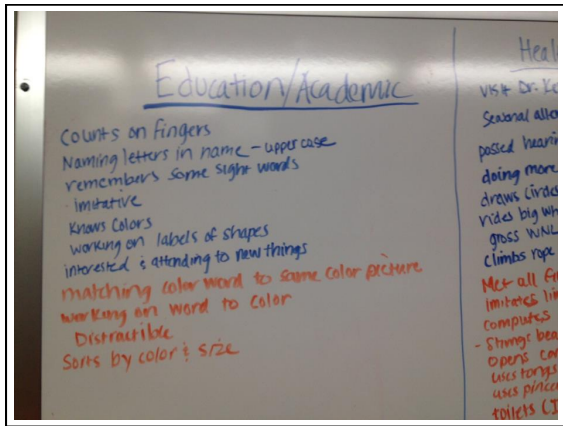 Education/Academic
Counts on fingers
Naming letters in name - upper case
remembers some sight words
· imitative
Knows Colors
working on labels of shapes
interested & attending to new things
matching color word to same color picture
working on word to color
Distractible
Sorts by color & size
Heal
Visit Dr.
Seasonal
passed hearin
doing more
draws Circles
rides big wh
gross WNL
climbs rope
Met all
imitates lin
computer
- Strings bea
opens con
uses tongs
uses pince
toilets (I